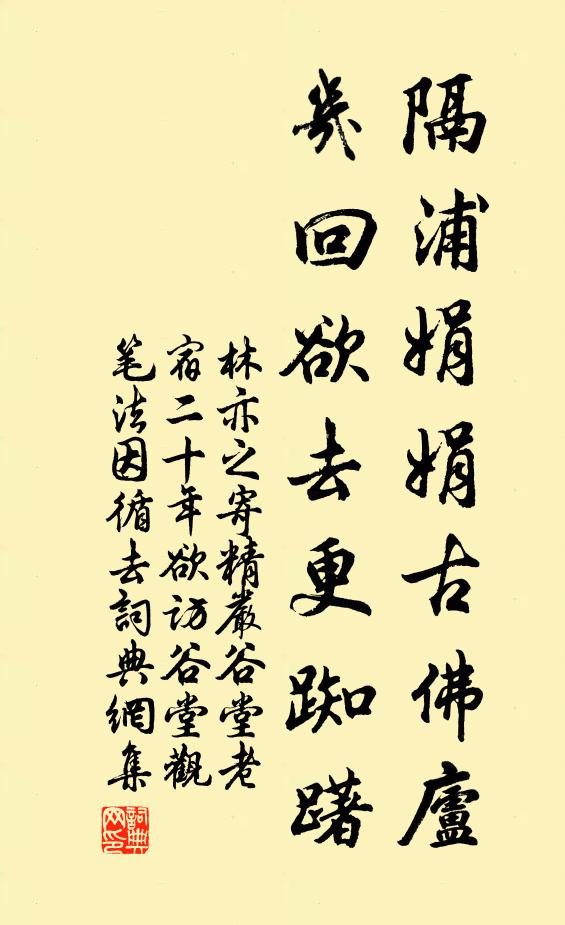 隔浦娟娟古佛廬
幾回欲去更踟躇
林亦之寄精嚴谷堂老
宿二十年欲訪谷堂觀
笔法因循去詞典網集
詞典
网印